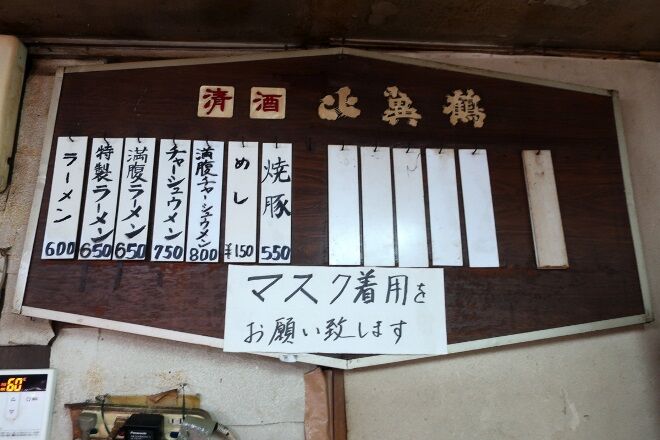 清酒 比翼鶴
ラーメン 600
特製ラーメン 650
満腹ラーメン 650
チャーシュウメン 750
満腹チャーシュウメン 800
めし ¥150
焼豚 550
マスク着用を
お願い致します
60
Panasonic